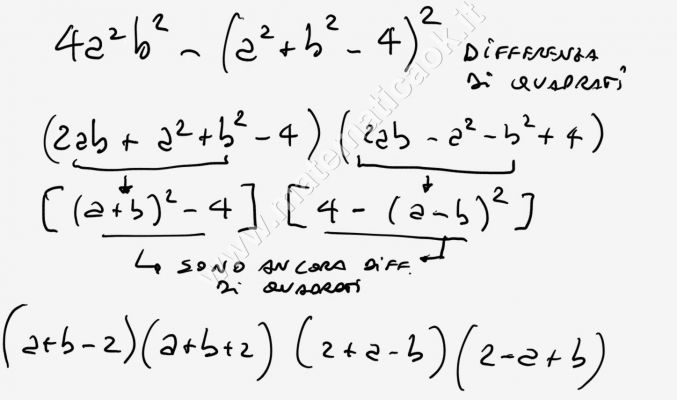 4a²b² - (a²+b²-4)² DIFFERENZA
DI QUADRATI
(2ab + a²+b²-4) (2ab - a²-b²+4)
[(a+b)²-4] [4 - (a-b)²]
↳ SONO ANCORA DIFF.
DI QUADRATI
(a+b-2)(a+b+2) (2+a-b)(2-a+b)
www.matematicaok.it